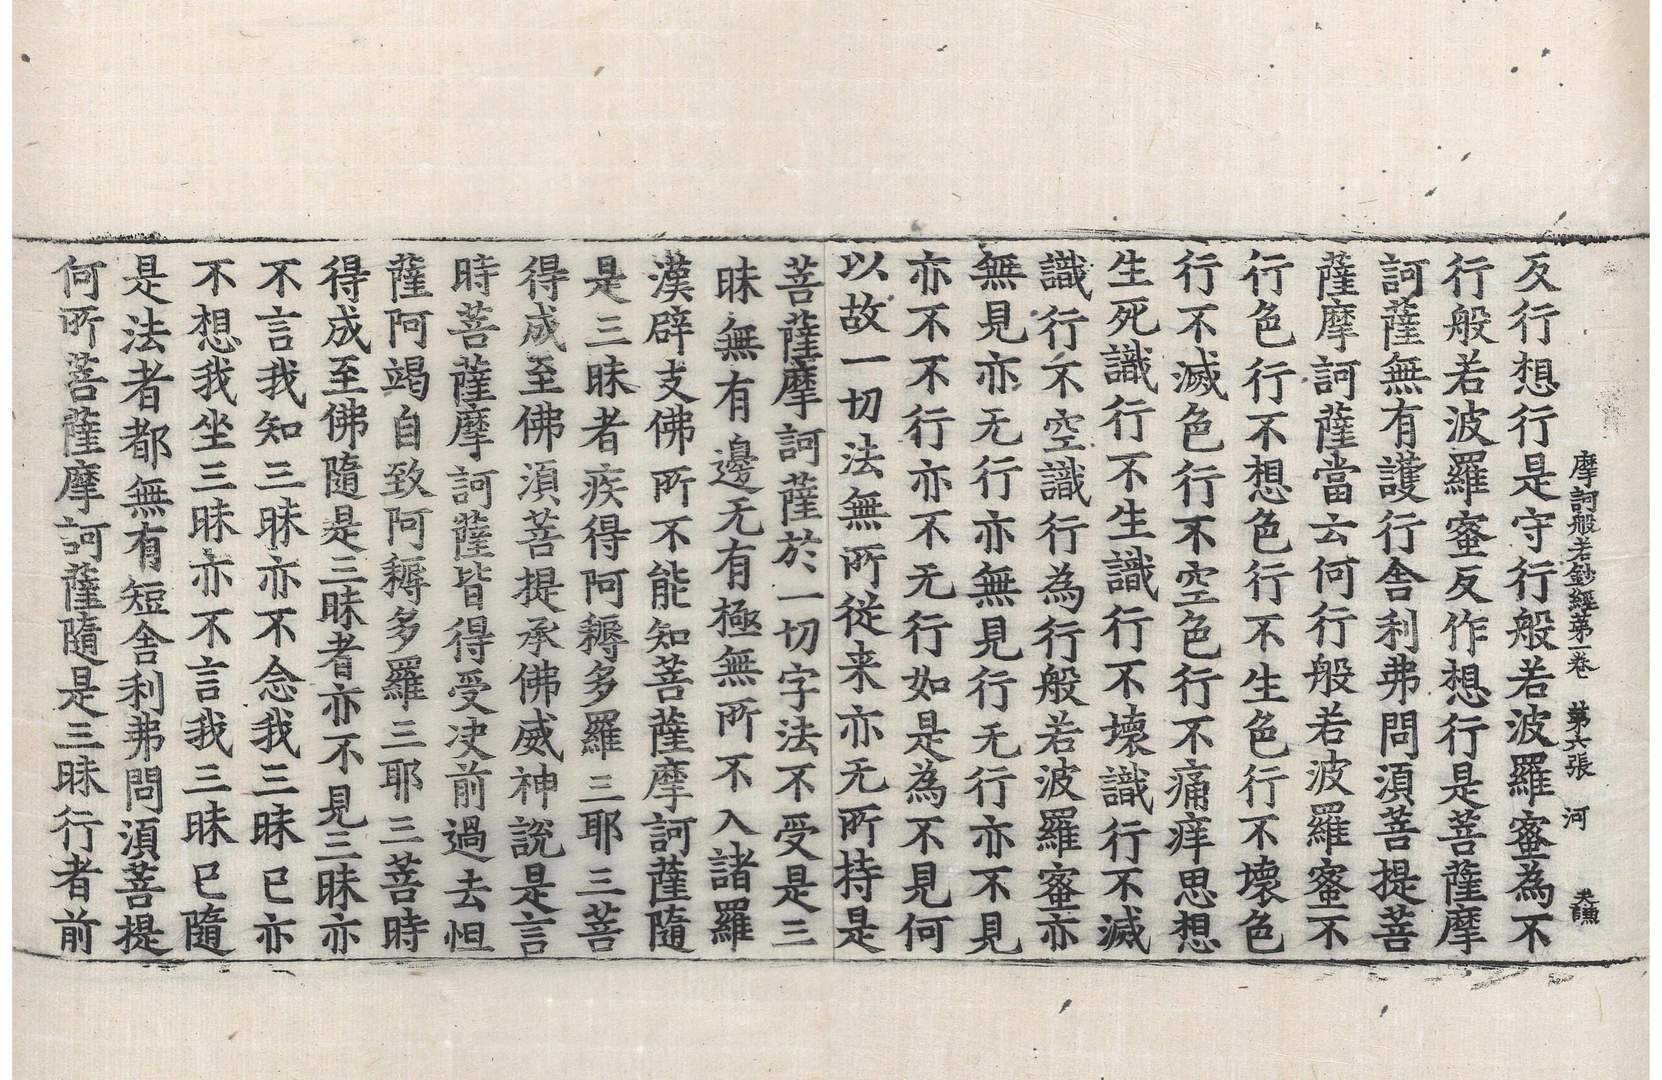 摩訶般若鈔經第一卷　第六張　河　天謙
反行想行是守行般若波羅蜜為不
行般若波羅蜜反作想行是菩薩摩
訶薩無有護行舍利弗問湏菩提菩
薩摩訶薩當云何行般若波羅蜜不
行色行不想色行不生色行不壞色
行不滅色行不空色行不痛痒思想
生死識行不生識行不壞識行不滅
識行不空識行為行般若波羅蜜亦
無見亦无行亦無見行无行亦不見
亦不不行亦不无行如是為不見何
以故一切法無所從来亦无所持是
菩薩摩訶薩於一切字法不受是三
昧無有邊无有極無所不入諸羅
漢辟支佛所不能知菩薩摩訶薩隨
是三昧者疾得阿耨多羅三耶三菩
得成至佛湏菩提承佛威神說是言
時菩薩摩訶薩皆得受决前過去怛
薩阿竭自致阿耨多羅三耶三菩時
得成至佛隨是三昧者亦不見三昧亦
不言我知三昧亦不念我三昧已亦
不想我坐三昧亦不言我三昧已隨
是法者都無有短舍利弗問湏菩提
何所菩薩摩訶薩隨是三昧行者前